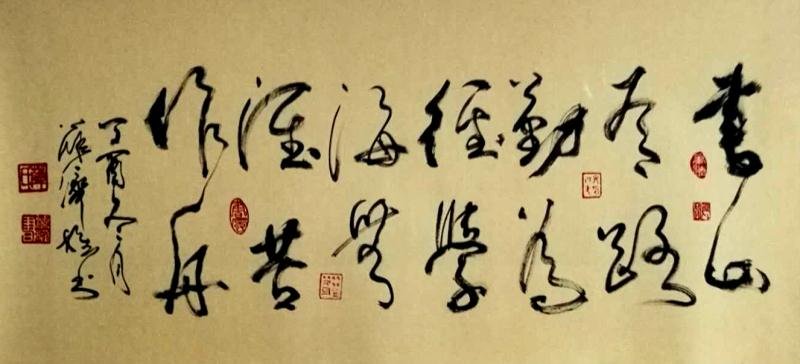 書山
有路
勤為
徑學
海無
涯苦
作舟
丁酉冬月